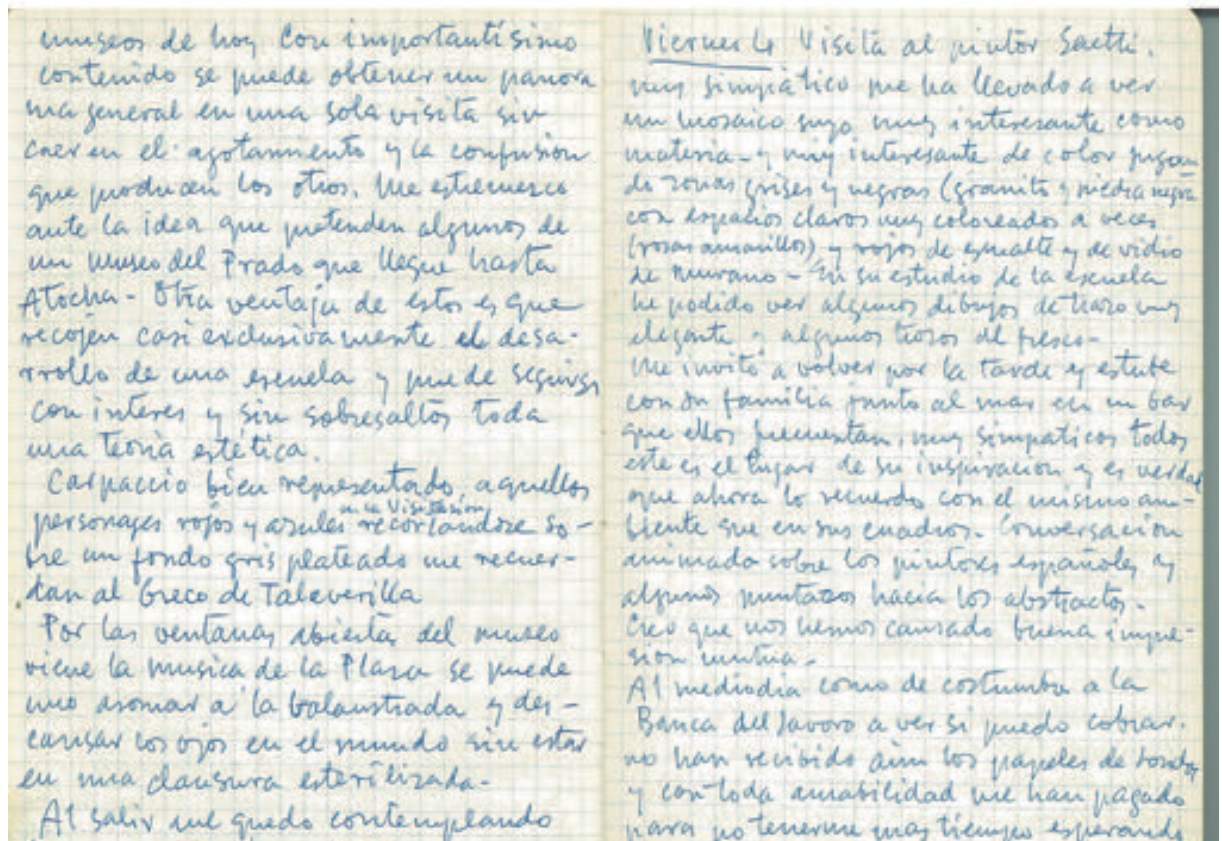 museos de hoy con importantísimo
contenido se puede obtener un panora
ma general en una sola visita sin
caer en el agotamiento y la confusión
que producen los otros. Me estremezco
ante la idea que pretenden algunos de
un museo del Prado que llegue hasta
Atocha - Otra ventaja de estos es que
recojen casi exclusivamente el desa-
rrollo de una escuela y puede seguirse
con interes y sin sobresaltos toda
una teoria estética.
Carpaccio bien representado, aquellos
en la Visitasion
personages rojos y azules recortandose so-
bre un fondo gris plateado me recuer-
dan al Greco de Talaverilla
Por las ventanas abierta del museo
viene la musica de la Plaza se puede
uno asomar a la balaustrada y des-
cansar los ojos en el mundo sin estar
en una clausura esterilizada-
Al salir me quedo contemplando
Viernes 4 Visita al pintor Saetti,
muy simpático me ha llevado a ver
un mosaico suyo muy interesante como
materia - y muy interesante de color jugan
do zonas grises y negras (granito y piedra negra
con espacios claros muy coloreados a veces
(rosas amarillos) y rojos de esmalte y de vidrio
de murano - En su estudio de la escuela
he podido ver algunos dibujos de trazo muy
elegante y algunos trozos al fresco-
Me invitó a volver por la tarde y estube
con su familia junto al mar en un bar
que ellos frecuentan, muy simpaticos todos
este es el lugar de su inspiración y es verdad
que ahora lo recuerdo con el mismo am-
biente que en sus cuadros. Conversación
animada sobre los pintores españoles y
algunos puntazos hacia los abstractos-
Creo que nos hemos causado buena impre-
sión mutua-
Al mediodia como de costumbre a la
Banca del lavoro a ver si puedo cobrar.
no han recibido aún los papeles de
y con toda amabilidad me han pagado
para no tenerme mas tiempo esperando